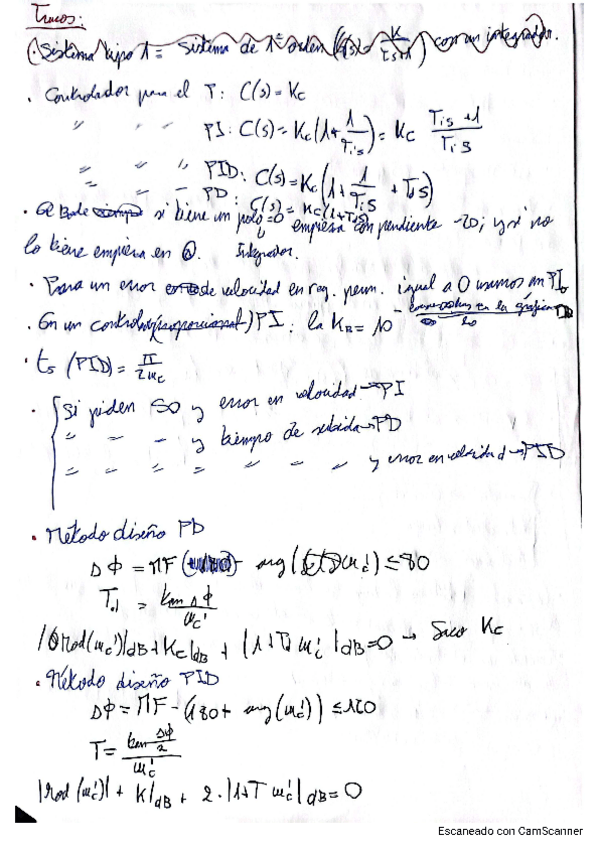 Trucos:
(· Sistema tipo 1 = Sistema de 1er orden (G(s) = K/(τs+1)) con un integrador.
· Controlador para el T: C(s) = Kc
" " " PI: C(s) = Kc(1+1/(Ti s)) = Kc (Ti s +1)/(Ti s)
" " " PID: C(s) = Kc(1+1/(Ti s) + Td s)
" " - PD: C(s) = Kc(1+Td s)
· El Bode si tiene un polo=0 empieza con pendiente -20; y si no
lo tiene empieza en 0. Integrador.
· Para un error de velocidad en reg. perm. igual a 0 usamos un PI.
· En un control (proporcional) PI: la KB = 10 en la gráfica
20
· ts (PID) = π/(2ωc)
· Si piden SO y error en velocidad → PI
" " - - y tiempo de subida → PD
" " = = " " - - y error en velocidad → PID
· Método diseño PD
ΔΦ = MF - arg( ωc') ≤ 80
Td = tan ΔΦ/ωc'
|mod(ωc')|dB + Kc|dB + |1+Td ωc'|dB = 0 → Saco Kc
· Método diseño PID
ΔΦ = MF - (180 + arg(ωc')) ≤ 160
T = tan (ΔΦ/2)/ωc'
|mod(ωc')| + K|dB + 2·|1+T ωc'|dB = 0
Escaneado con CamScanner